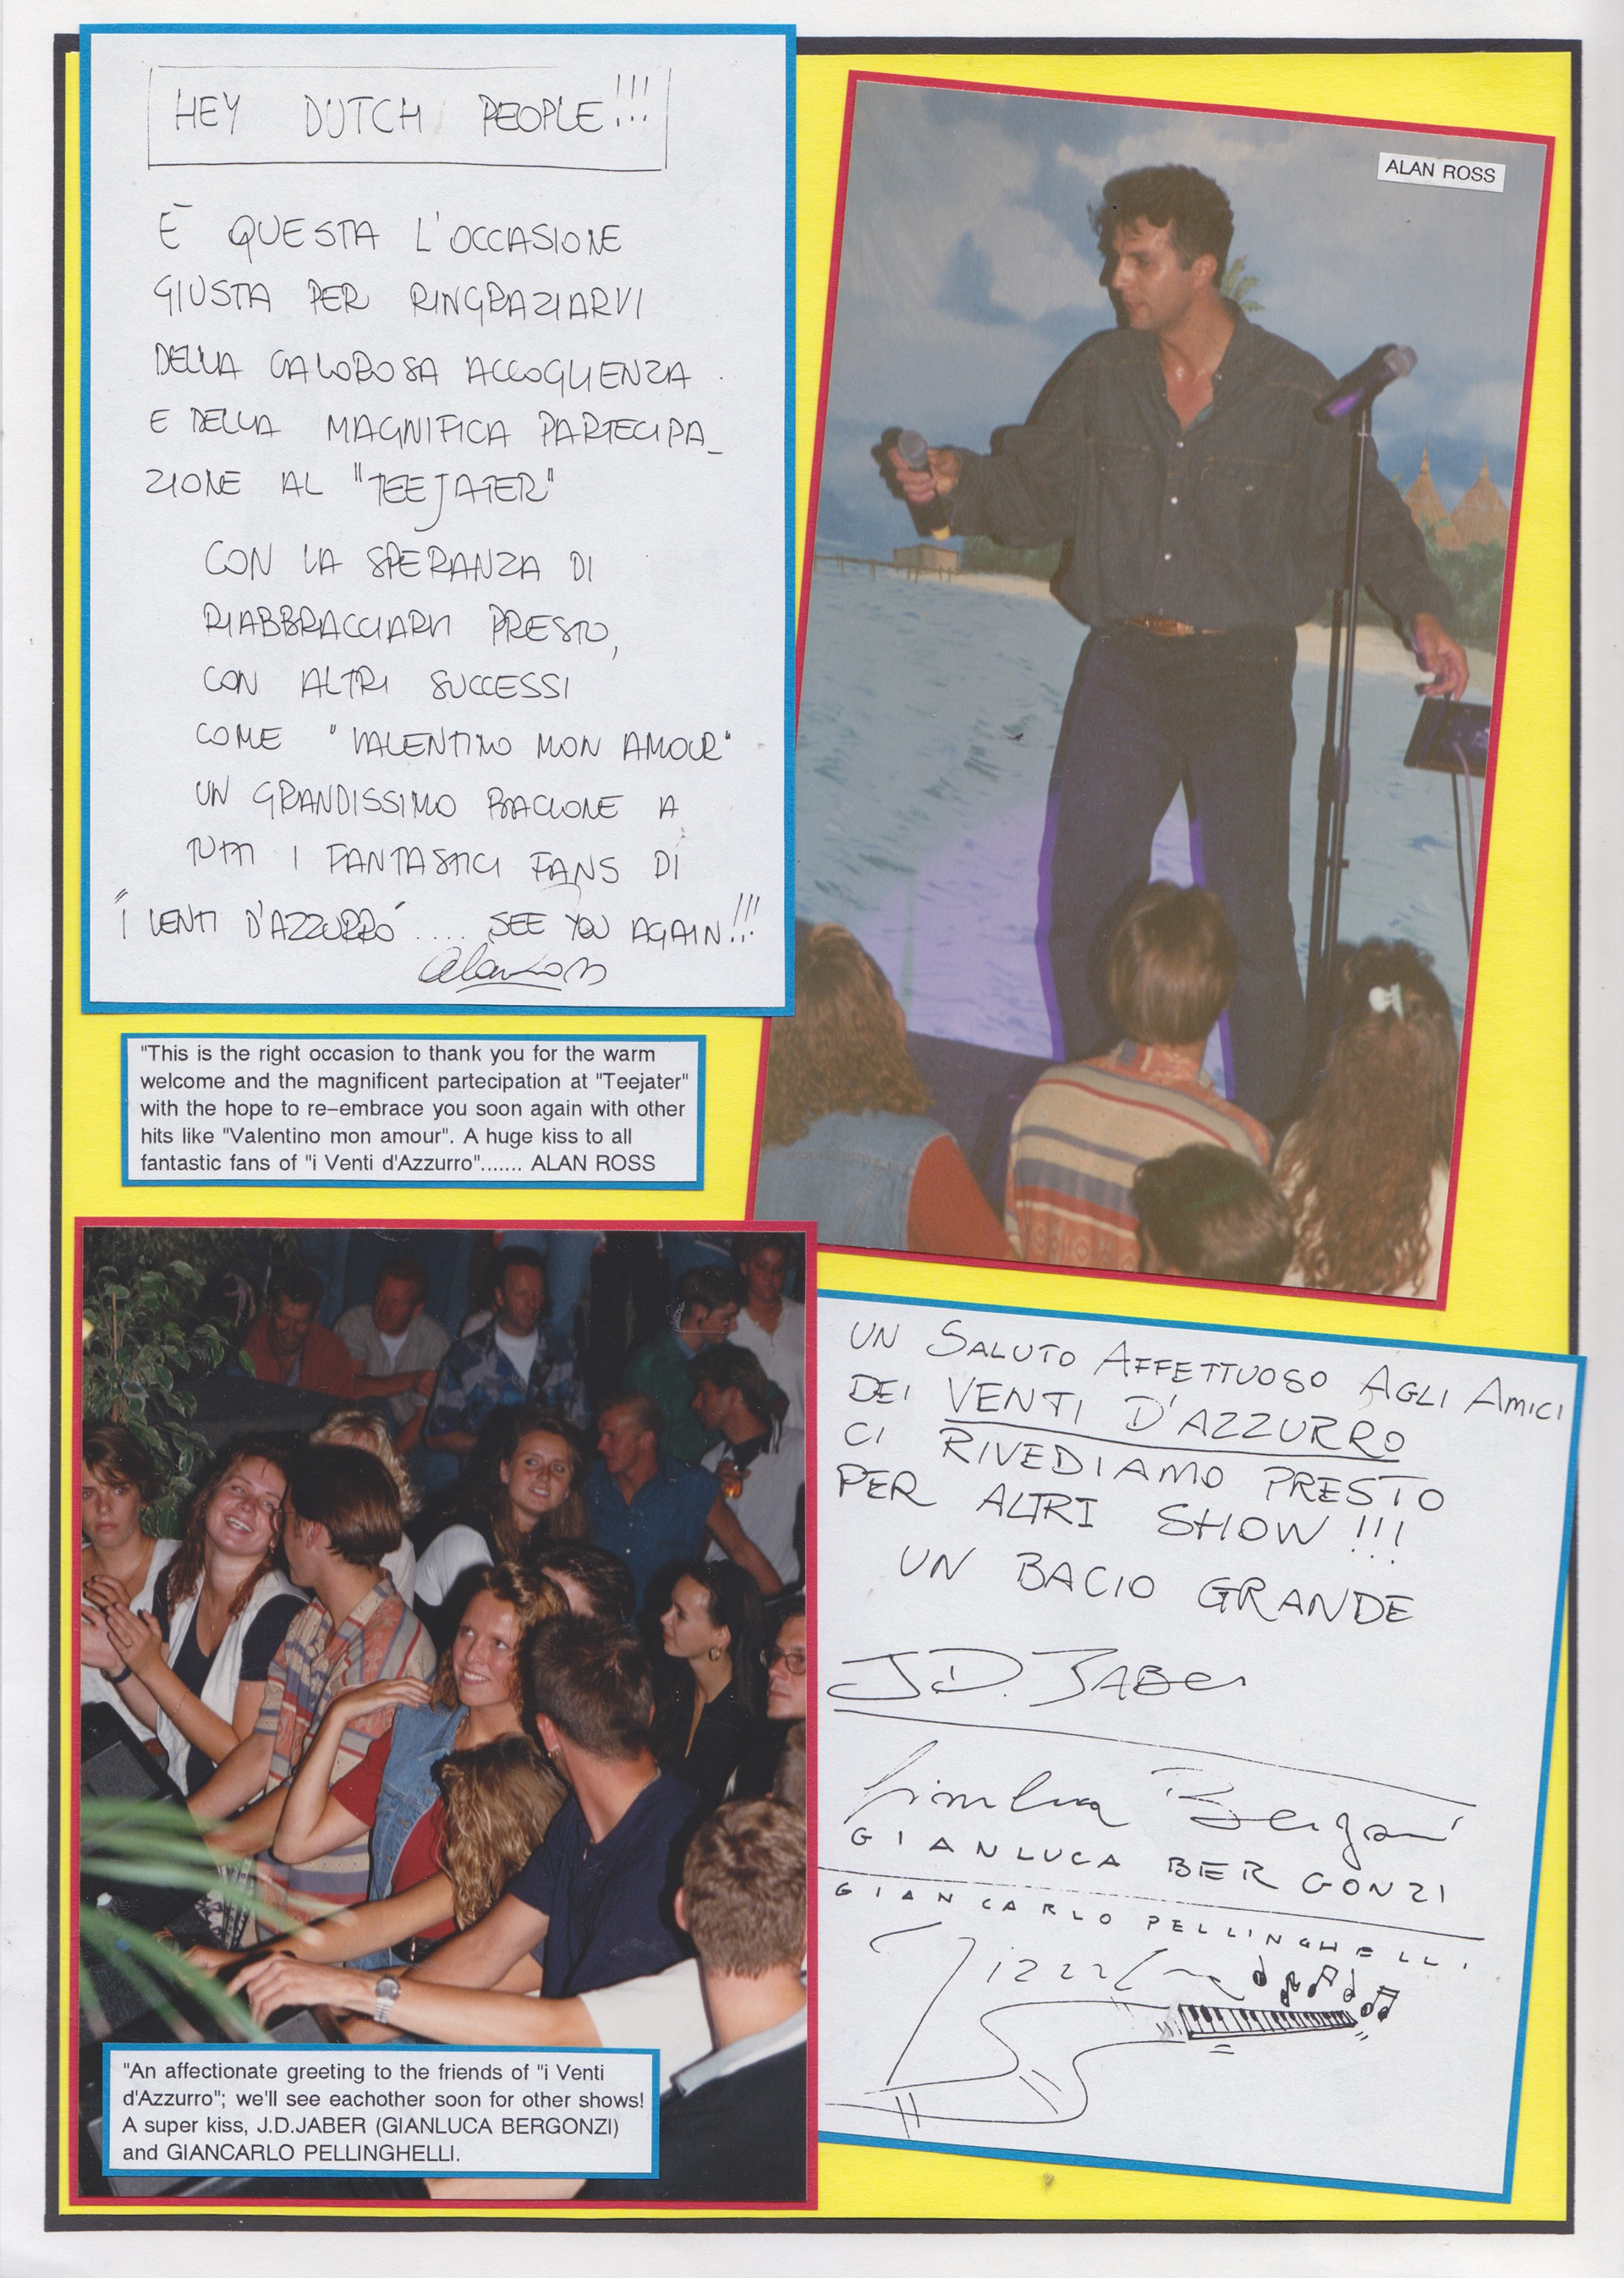 HEY DUTCH PEOPLE!!!
È QUESTA L'OCCASIONE
GIUSTA PER RINGRAZIARVI
DELLA CALOROSA ACCOGLIENZA
E DELLA MAGNIFICA PARTECIPA_
ZIONE AL "TEEJATER"
CON LA SPERANZA DI
RIABBRACCIARVI PRESTO,
CON ALTRI SUCCESSI
COME "VALENTINO MON AMOUR"
UN GRANDISSIMO BACIONE A
TUTTI I FANTASTICI FANS DI
"I VENTI D'AZZURRO" .... SEE YOU AGAIN!!!
Alan Ross
ALAN ROSS
"This is the right occasion to thank you for the warm
welcome and the magnificent partecipation at "Teejater"
with the hope to re-embrace you soon again with other
hits like "Valentino mon amour". A huge kiss to all
fantastic fans of "i Venti d'Azzurro"....... ALAN ROSS
UN SALUTO AFFETTUOSO AGLI AMICI
DEI VENTI D'AZZURRO
CI RIVEDIAMO PRESTO
PER ALTRI SHOW!!!
UN BACIO GRANDE
J.D. JABER
Gianluca Bergonzi
GIANLUCA BERGONZI
GIANCARLO PELLINGHELLI.
"An affectionate greeting to the friends of "i Venti
d'Azzurro"; we'll see eachother soon for other shows!
A super kiss, J.D.JABER (GIANLUCA BERGONZI)
and GIANCARLO PELLINGHELLI.